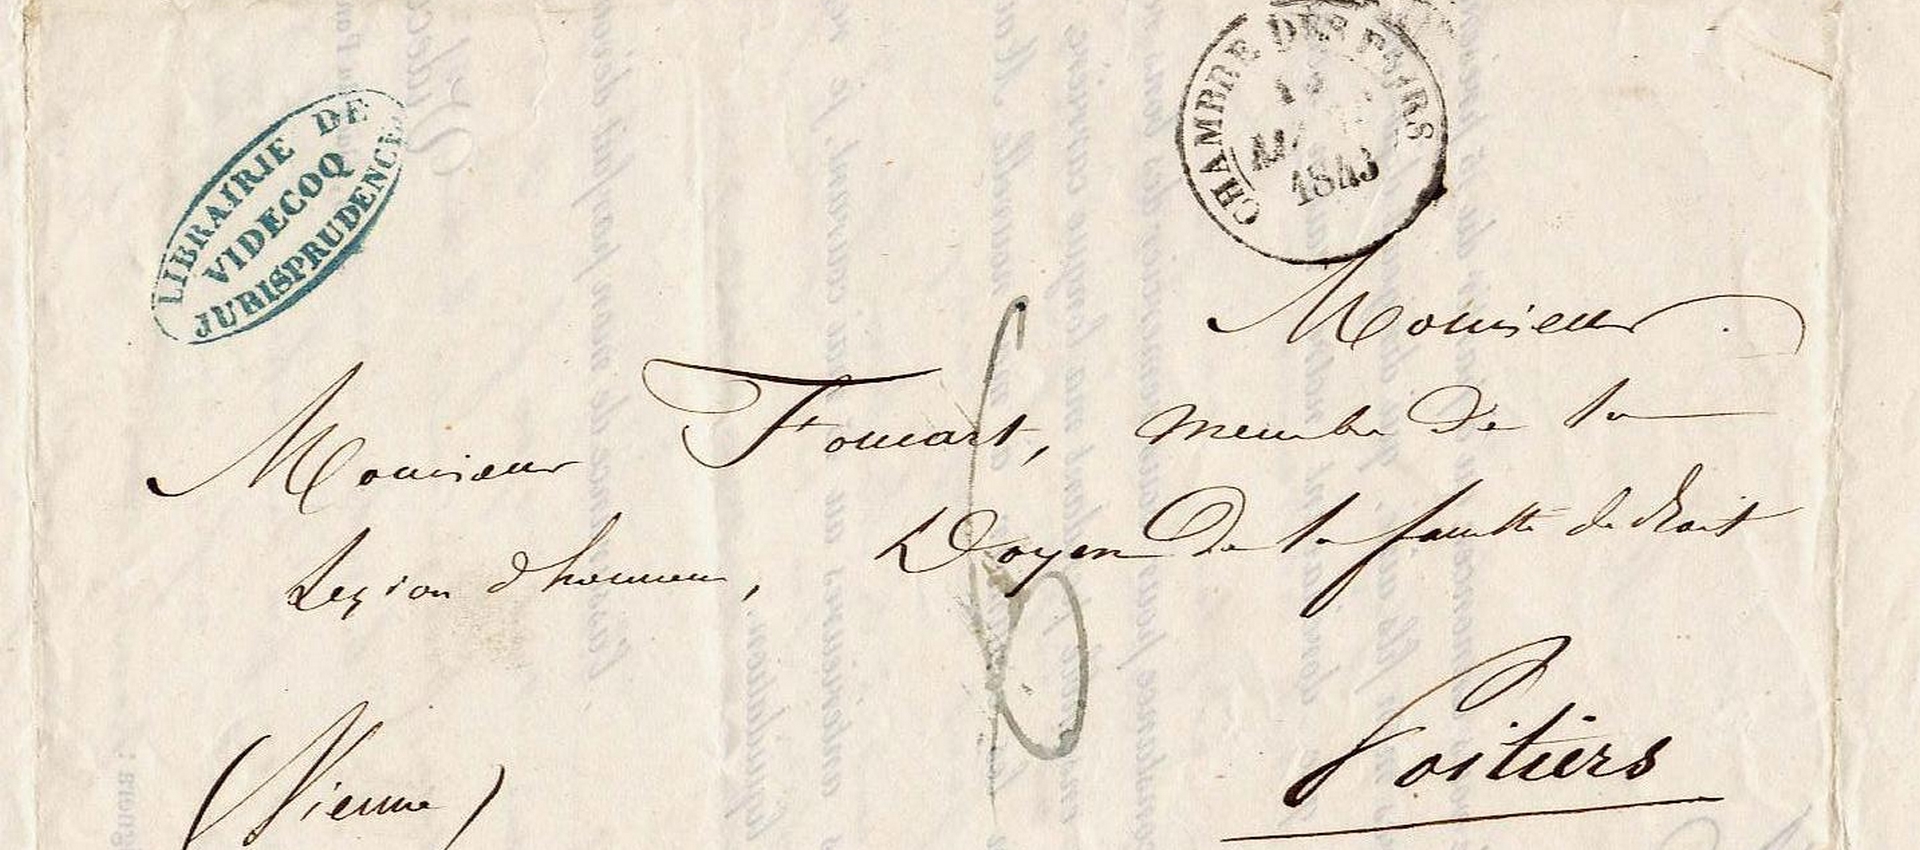 LIBRAIRIE DE
VIDECOQ
JURISPRUDENCE
CHAMBRE DES PAIRS
1843
Monsieur
Monsieur Foucart, membre de la
Legion d'honneur, Doyen de la faculté de droit
6
Poitiers
(Vienne)